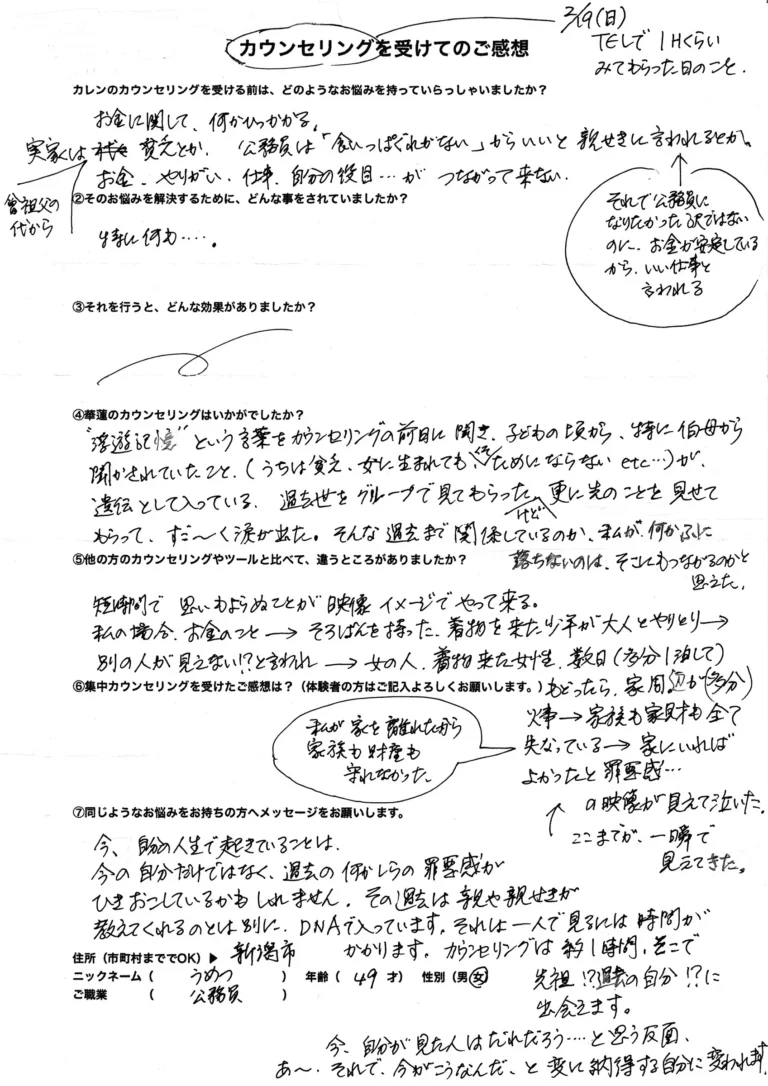 2/19(日)
TELで 1Hくらい
みてもらった日のこと.
カウンセリングを受けてのご感想
カレンのカウンセリングを受ける前は、どのようなお悩みを持っていらっしゃいましたか？
お金に関して、何かひっかかる。
実家は 貧乏とか、公務員は「食いっぱぐれがない」からいいと 親せきに言われるとか。
お金、やりがい、仕事、自分の役目…が つながって来ない.
曾祖父の
代から
それで公務員に
なりたかった訳ではない
のに、お金が安定している
から、いい仕事と
言われる
②そのお悩みを解決するために、どんな事をされていましたか？
特に何も….
③それを行うと、どんな効果がありましたか？
④華蓮のカウンセリングはいかがでしたか？
"浮遊記憶" という言葉をカウンセリングの前日に 聞き、子どもの頃から、特に伯母から
聞かされていたこと、(うちは貧乏、女に生まれても、ためにならない etc…)が、
遺伝として入っている. 過去世をグループで見てもらったけど、更に先のことを 見せて
もらって、すご〜く涙が出た。そんな過去まで 関係しているのか、私が 何か ふに
落ちないのは、そこにもつながるのかと
思えた.
⑤他の方のカウンセリングやツールと比べて、違うところがありましたか？
短時間で 思いもよらぬことが 映像 イメージで やって来る。
私の場合、お金のこと → そろばんを持った、着物を来た少年が大人とやりとり→
別の人が見えない!?と言われ → 女の人、着物来た女性、数日(多分1泊して)
もどったら、家周辺が(多分)
火事→家族も家財も全て
失なっている→家にいれば
よかったと罪悪感…
の映像が見えて泣いた.
↑ ここまでが、一瞬で
見えてきた。
⑥集中カウンセリングを受けたご感想は？（体験者の方はご記入よろしくお願いします。）
私が家を離れたから
家族も財産も
守れなかった
⑦同じようなお悩みをお持ちの方へメッセージをお願いします。
今、自分の人生で起きていることは、
今の自分だけではなく、過去の何かしらの罪悪感が
ひきおこしているかもしれません. その過去は 親や親せきが
教えてくれるのとは別に、DNAで入っています。それは一人で見るには 時間が
かかります。カウンセリングは 約1時間、そこで
先祖!?過去の自分!?に
出会えます。
今、自分が見た人はだれだろう…と思う反面、
あ〜、それで、今がこうなんだ、と 変に納得する自分に変われます.
住所（市町村まででOK）▶ 新潟市
ニックネーム（ うめつ ） 年齢（ 49 才） 性別（男 女）
ご職業 （ 公務員 ）